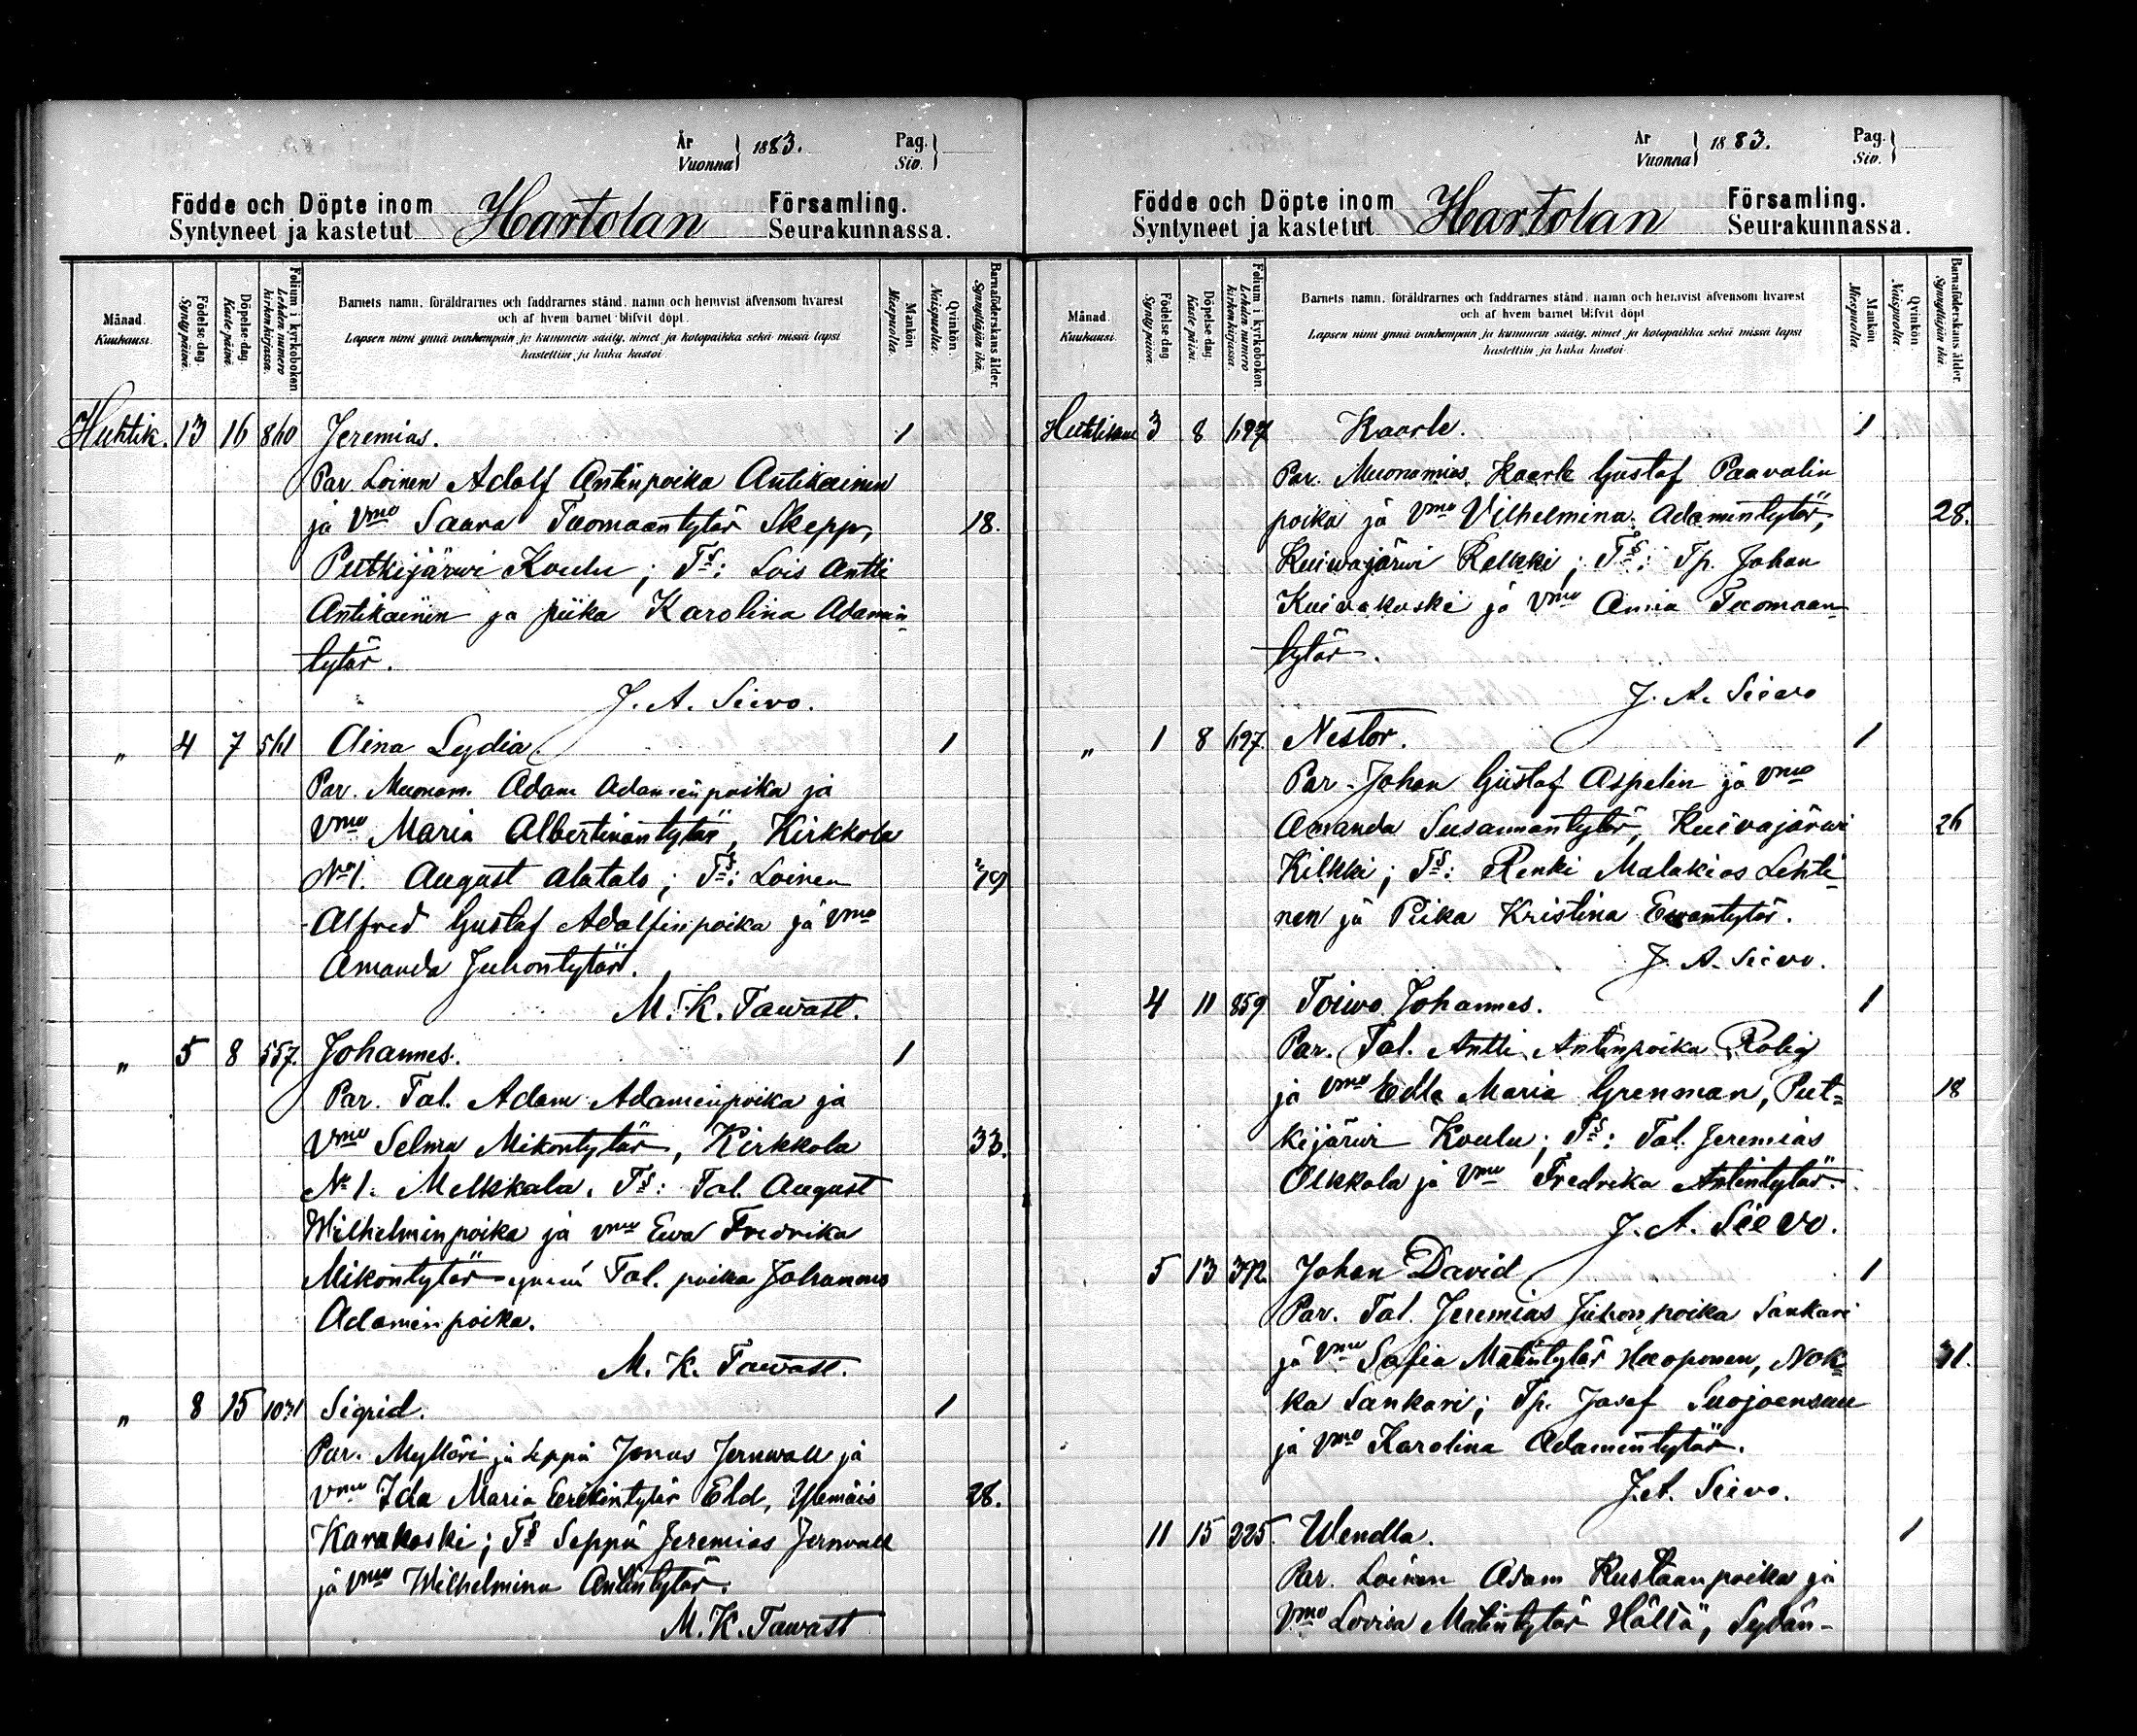 År
Vuonna } 1883.
Pag.
Siv. }
Födde och Döpte inom Hartolan Församling.
Syntyneet ja kastetut Seurakunnassa.
Månad.
Kuukausi.
Födelse-dag.
Synty päivä.
Döpelse-dag.
Kaste päivä.
Folium i kyrkoboken.
Lehden numero
kirkonkirjassa.
Barnets namn, föräldrarnes och faddrarnes stånd, namn och hemvist äfvensom hvarest
och af hvem barnet blifvit döpt.
Lapsen nimi ynnä vanhempain ja kummein sääty, nimet ja kotopaikka sekä missä lapsi
kastettiin ja kuka kastoi.
Mankön.
Miespuolia.
Qvinkön.
Naispuolia.
Barnaföderskans ålder.
Synnyttäjän ikä.
Huhtik. 13 16 860 Jeremias. 1
Par. Loinen Adolf Antinpoika Antikainen
ja Vmo Saara Tuomaantytär Skepp, 18.
Putkijärwi Koulu; Ts: Lois Antti
Antikainen ja piika Karolina Adamin
tytär.
J. A. Siivo.
" 4 7 561 Aina Lydia. 1
Par. Muonam. Adam Adaminpoika ja
Vmo Maria Albertinantytär, Kirkkola
No 1. August Alatalo; Ts: Loinen
Alfred Gustaf Adolfinpoika ja Vmo
Amanda Juhontytär.
M. K. Tawast.
" 5 8 557. Johannes. 1
Par. Tal. Adam Adaminpoika ja
Vmo Selma Mikontytär, Kirkkola 33.
No 1. Melkkala. Ts: Tal. August
Wilhelminpoika ja vmo Ewa Fredrika
Mikontytär ynnä Tal. poika Johannes
Adaminpoika.
M. K. Tawast.
" 8 15 1031 Sigrid. 1
Par. Mylläri ja seppä Jonas Jernwall ja
Vmo Ida Maria Eerikintytär Ehd, Ylemäis 28.
Karakoski; Ts Seppä Jeremias Jernvall
ja Vmo Wilhelmina Antintytär.
M. K. Tawast
År
Vuonna } 1883.
Pag.
Siv. }
Födde och Döpte inom Hartolan Församling.
Syntyneet ja kastetut Seurakunnassa.
Månad.
Kuukausi.
Födelse-dag.
Synty päivä.
Döpelse-dag.
Kaste päivä.
Folium i kyrkoboken.
Lehden numero
kirkonkirjassa.
Barnets namn, föräldrarnes och faddrarnes stånd, namn och hemvist äfvensom hvarest
och af hvem barnet blifvit döpt.
Lapsen nimi ynnä vanhempain ja kummein sääty, nimet ja kotopaikka sekä missä lapsi
kastettiin ja kuka kastoi.
Mankön.
Miespuolia.
Qvinkön.
Naispuolia.
Barnaföderskans ålder.
Synnyttäjän ikä.
Huhtikuu 3 8 697 Kaarle. 1
Par. Muonamies. Kaarle Gustaf Paavalin
poika ja Vmo Vilhelmina Adamintytär, 28.
Kuivajärwi Kelkki; Ts: Tp. Johan
Kuivakoski ja Vmo Anna Tuomaan
tytär.
J. A. Siivo
" 1 8 697. Nestor. 1
Par. Johan Gustaf Aspelin ja Vmo
Amanda Susannantytär, Kuivajärwi 26
Kilkki; Ts: Renki Malakias Lehti
nen ja Piika Kristina Ewantytär.
J. A. Siivo.
4 11 859 Toiwo Johannes. 1
Par. Tal. Antti Antinpoika Rolig
ja Vmo Edla Maria Grenman, Put= 18
kijärwi Koulu; Ts: Tal. Jeremias
Olkkola ja Vmo Fredrika Antintytär.
J. A. Siivo.
5 13 372 Johan David 1
Par. Tal. Jeremias Juhonpoika Sankari
ja Vmo Sofia Matintytär Haoponen, Nok 31.
ka Sankari; Tp. Josef Suojoensuu
ja Vmo Karolina Adamintytär.
J. A. Siivo.
11 15 225. Wendla. 1
Par. Loinen Adam Kustaanpoika ja
Vmo Lovisa Matintytär Hältä, Sydän-